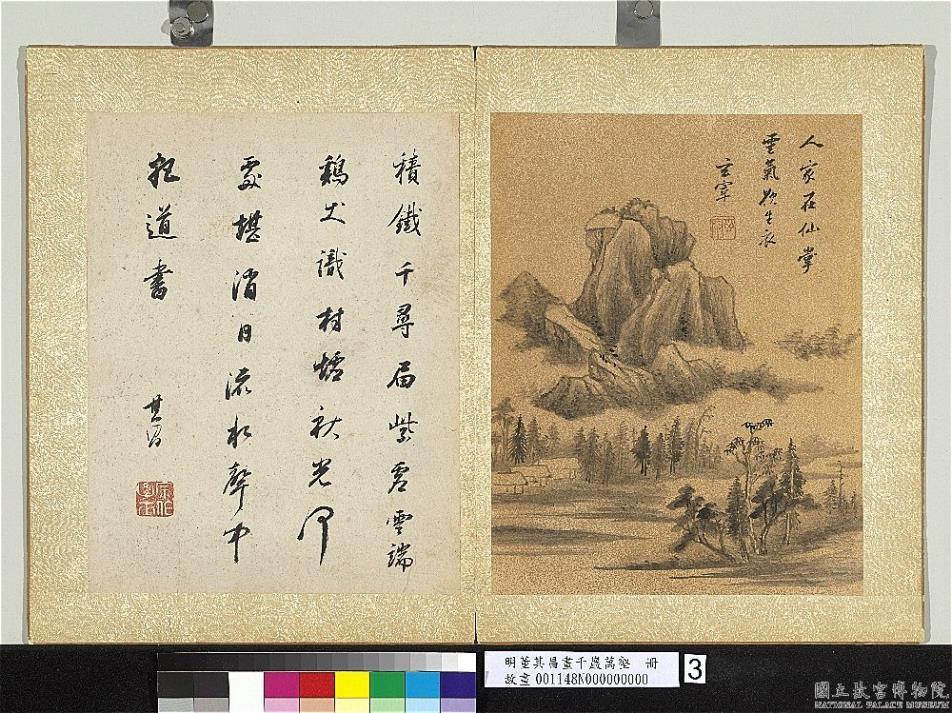 人家在仙掌
雲氣欲生衣
玄宰
積鐵千尋屆紫虛雲端
鷄犬識村墟秋光何
處堪消日流水聲中
把道書
其昌
明董其昌畫千巖萬壑 冊
故畫 001148N000000000
3
國立故宮博物院
NATIONAL PALACE MUSEUM